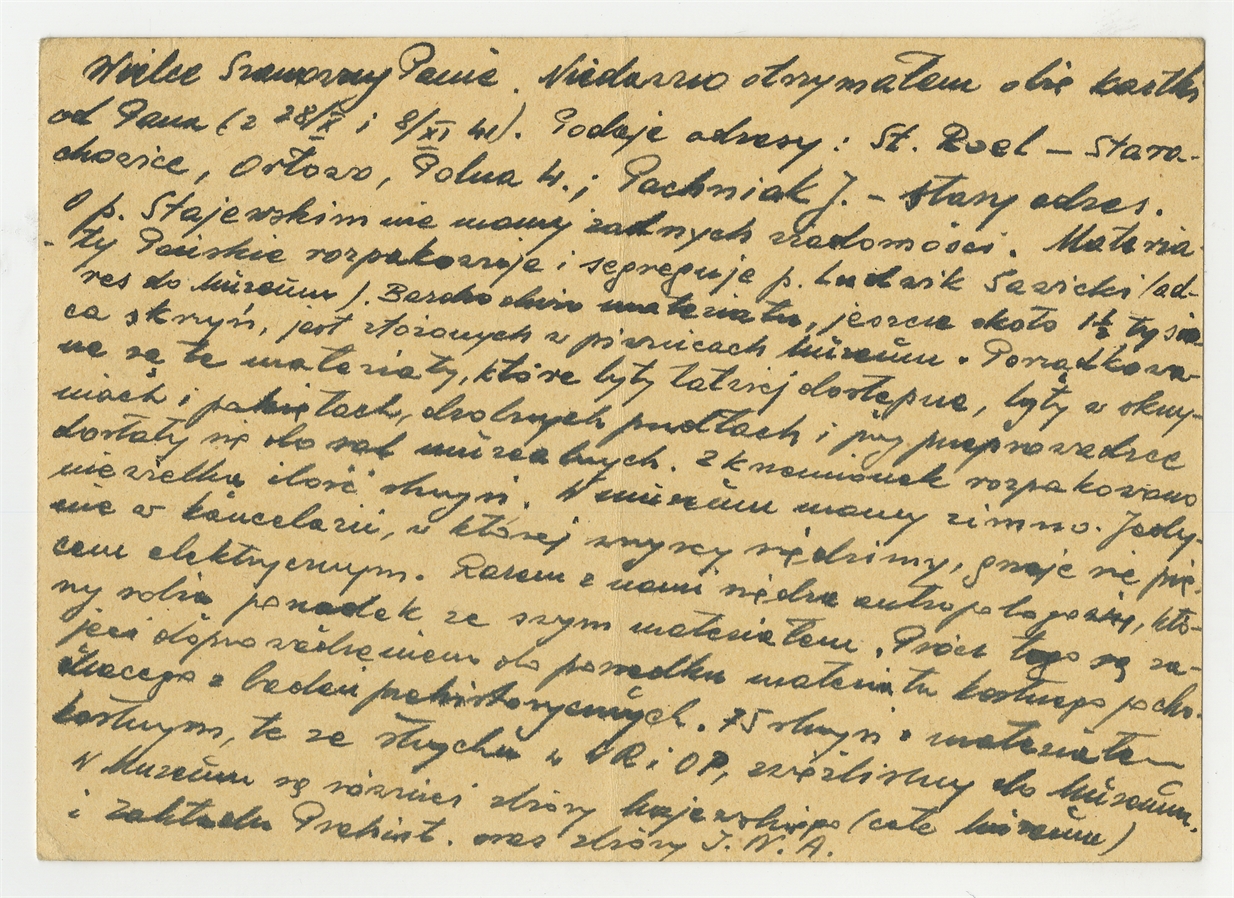 Wielce Szanowny Panie. Niedawno otrzymałem obie kartki
od Pana (z 28/X i 8/XI 41). Podaję adresy: St. Roel — Stara-
chowice, Orłowo, Polna 4.; Pachniak J. — stary adres.
O p. Stajewskim nie mamy żadnych wiadomości. Materia-
ły Pańskie rozpakowuje i segreguje p. Ludwik Sawicki (ad-
res do Muzeum). Bardzo dużo materiału, jeszcze około 1½ tysią-
ca skrzyń, jest złożonych w piwnicach Muzeum. Porządkowa-
ne są te materiały, które były łatwiej dostępne, były w skrzy-
niach i pakietach, drobnych pudłach i przy przeprowadzce
dostały się do sal muzealnych. Z krzemionek rozpakowano
niewielką ilość skrzyń. W muzeum mamy zimno. Jedy-
nie w kancelarii, w której wszyscy siedzimy, grzeje się pie-
cem elektrycznym. Razem z nami siedzą antropologowie, któ-
rzy robią porządek ze swym materiałem. Prócz tego są za-
jęci doprowadzeniem do porządku materiału kostnego pocho-
dzącego z badań prehistorycznych. 75 skrzyń z materiałem
kostnym, te ze strychu w UR i OP, zwieźliśmy do Muzeum.
W Muzeum są również zbiory Majewskiego (całe Muzeum)
i Zakładu Prehist. oraz zbiory I. N. A.